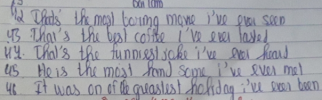 42 Thats' the most boring movie i've ever seen
43 That's the best coffee I've ever tasted
44. That's the funniest joke i've ever heard
45 He is the most hand some i've ever met
46 It was on of the greatest holiday i've ever been